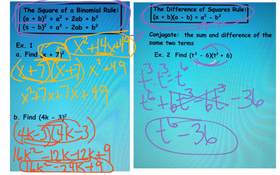 The Square of a Binomial Rule:
(a + b)² = a² + 2ab + b²
(x - b)² = a² - 2ab + b²
Ex. 1
a. Find (x + 7)²
x²+14x+49
(x+7)(x+7) x²+49
x²+7x+7x+49
b. Find (4k - 3)²
(4k-3)(4k-3)
16k²-12k-12k+9
16k²-24k+9
The Difference of Squares Rule:
(a + b)(a - b) = a² - b²
Conjugate: the sum and difference of the
same two terms
Ex. 2 Find (t³ - 6)(t³ + 6)
t³·t³=t⁶
t⁶+6t³-6t³-36
t⁶-36